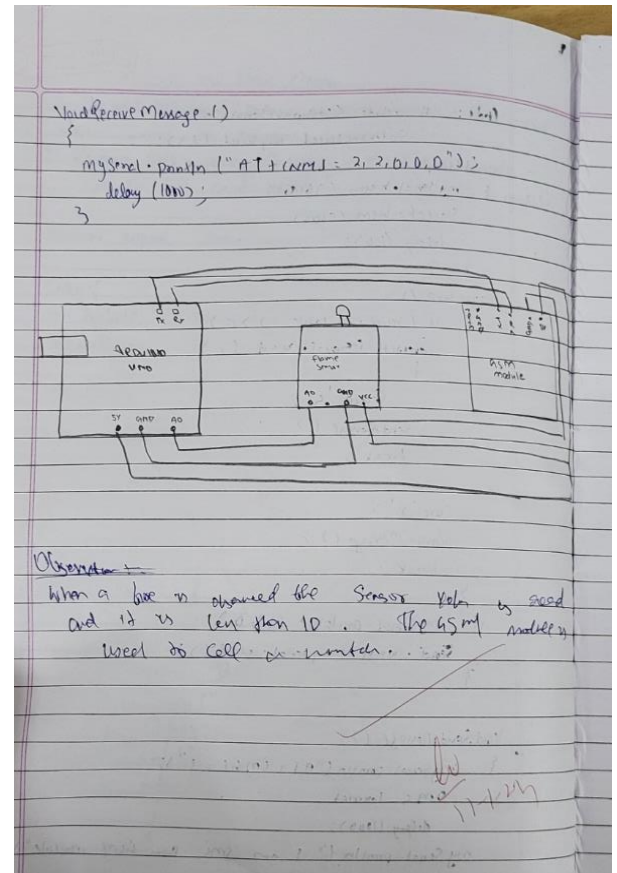 Void ReceiveMessage ()
{
mySerial.println ("AT+CNMI = 2, 2, 0, 0, 0");
delay (1000);
}
Tx Rx
ARDUINO
UNO
5V GND A0
flame
sensor
A0 GND VCC
GSM
module
Observation :-
When a fire is observed the Sensor value is read
and if is less than 10. The GSM module is
used to call a number.